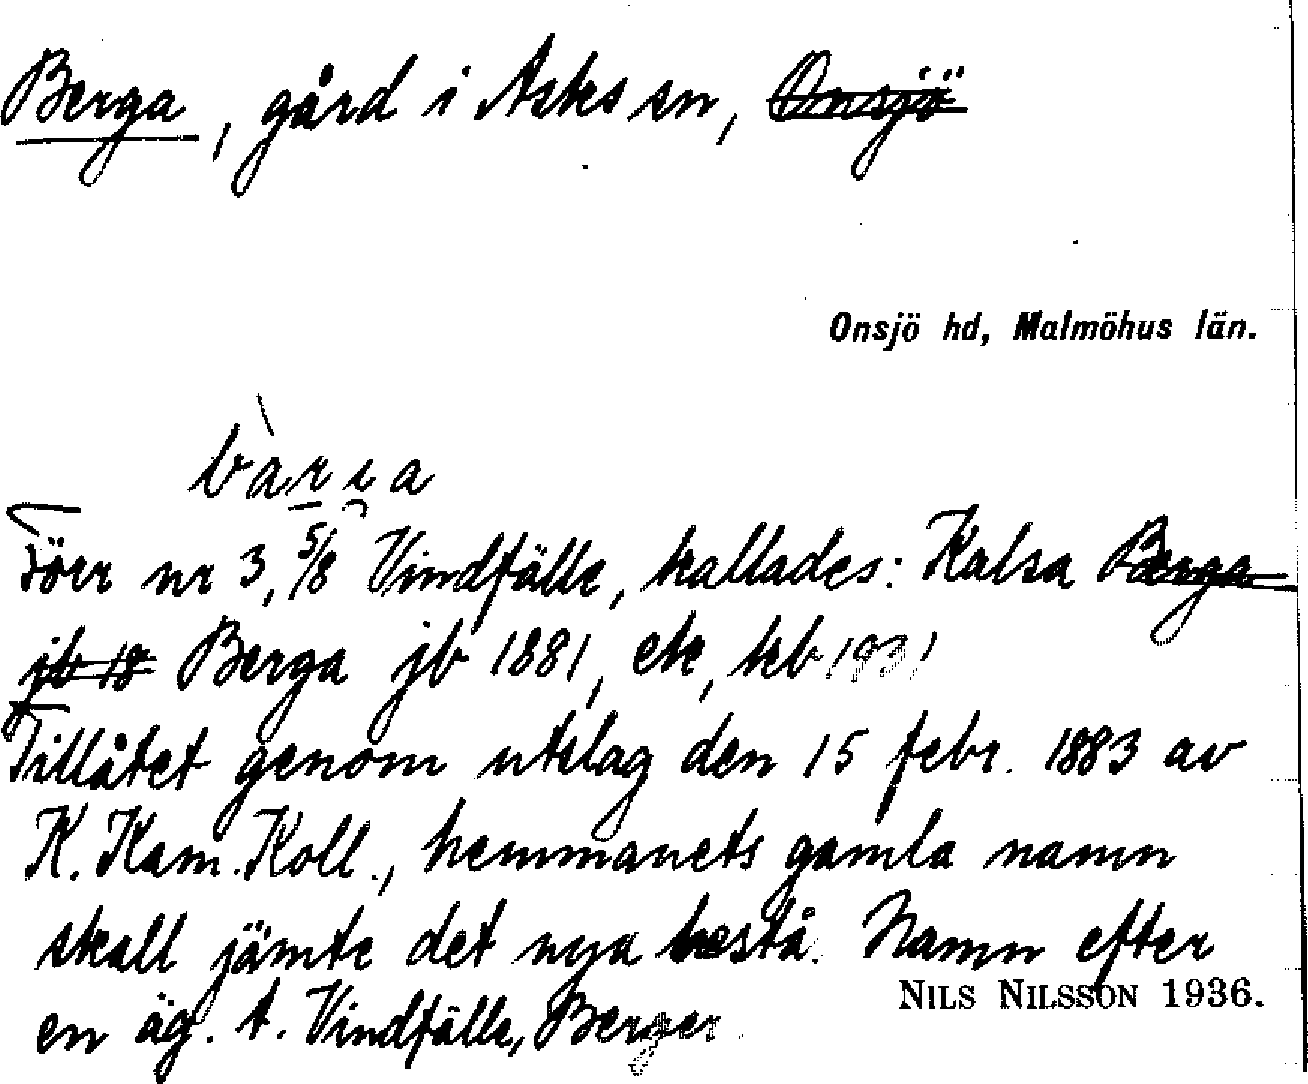 Berga, gård i Asks sn, ~~Onsjö~~
Onsjö hd, Malmöhus län.
bàrı̯a
Förr nr 3, 5/8 Vindfälle, kallades: Kalsa ~~Berga~~
~~jb 18~~ Berga jb 1881, etc, kb 1931
Tillåtet genom utslag den 15 febr. 1883 av
K. Kam. Koll., hemmanets gamla namn
skall jämte det nya bestå. Namn efter
en äg. t. Vindfälle, Berger.
NILS NILSSON 1936.